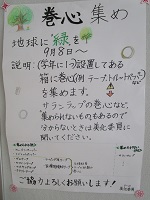 巻心集め
地球に"緑を"
9月8日～
説明:(学年に1つ)設置してある
箱に巻心(例 テープ、トイレットペーパーなど)
を集めます。
サランラップの巻心など、
集められないものもあるので
分からないときは美化委員に
聞いてください。
ご協力よろしくお願いします!